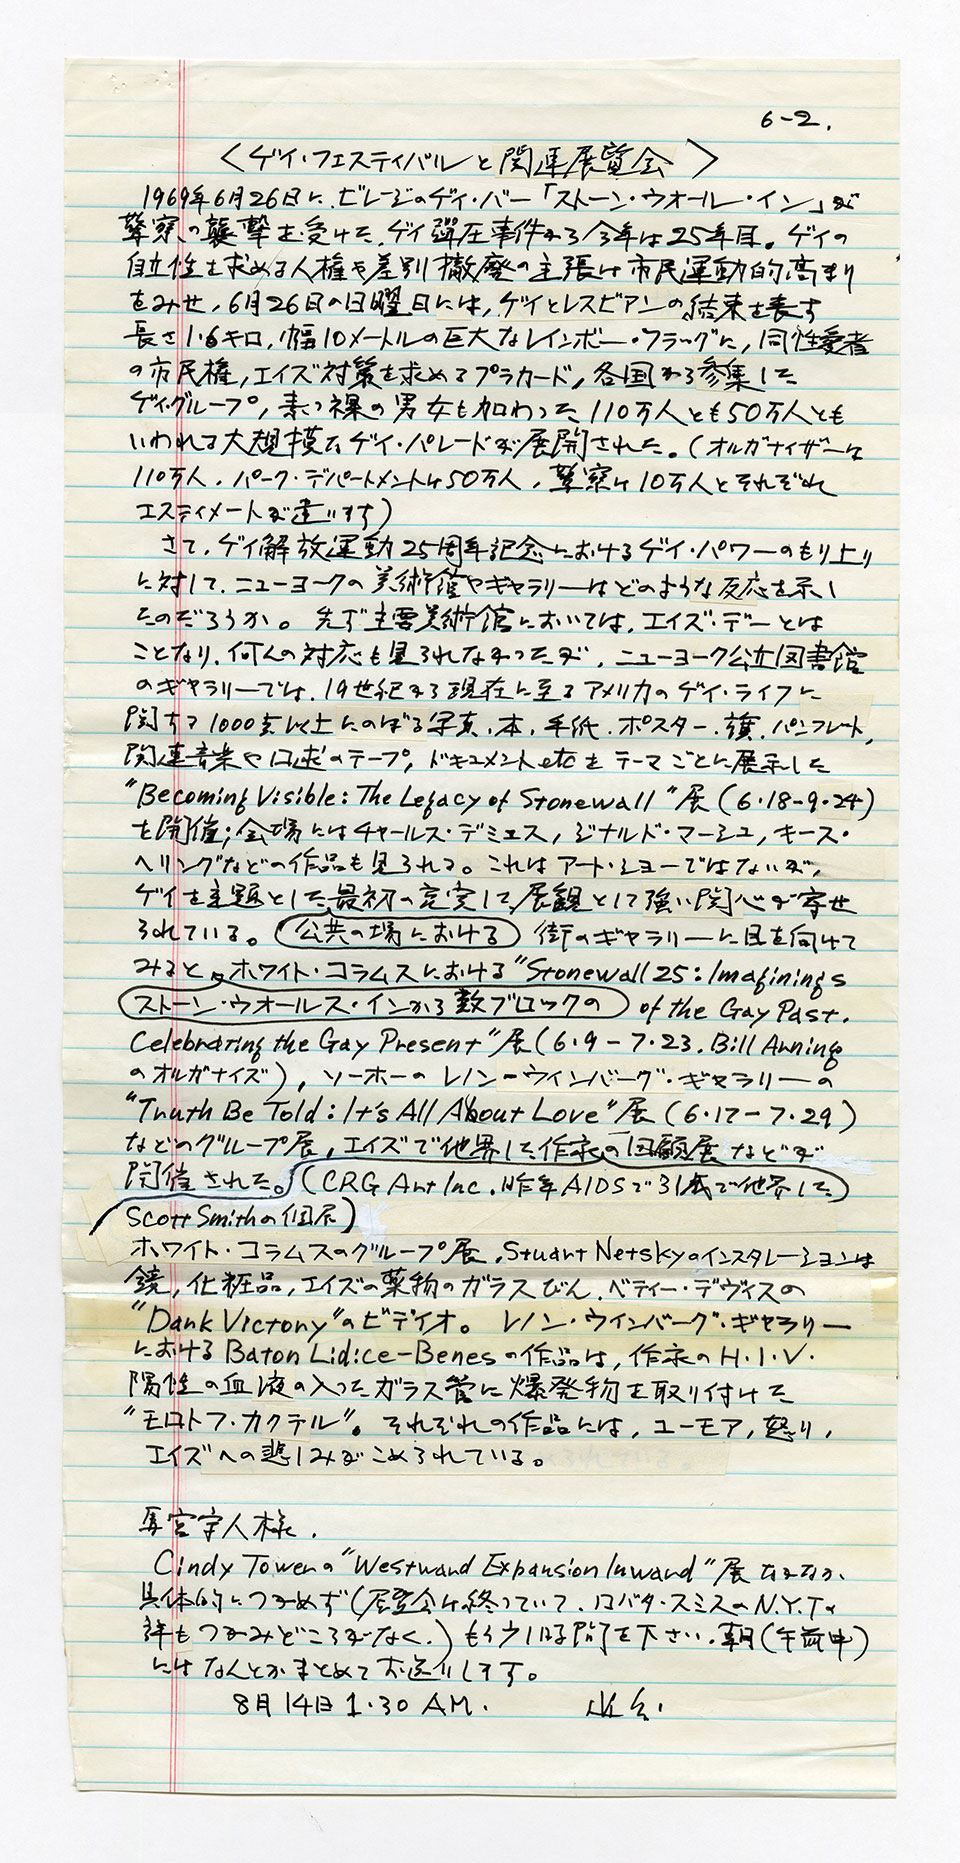 6-2.
〈ゲイ・フェスティバルと関連展覧会〉
1969年6月26日に、ビレージのゲイ・バー「ストーン・ウオール・イン」が
警察の襲撃を受けた、ゲイ弾圧事件から今年は25年目。ゲイの
自立性を求める人権や差別撤廃の主張は市民運動的高まり
をみせ、6月26日の日曜日には、ゲイとレスビアンの結束を表す
長さ1.6キロ,幅10メートルの巨大なレインボー・フラッグに,同性愛者
の市民権,エイズ対策を求めるプラカード,各国から参集した
ゲイ・グループ,素っ裸の男女も加わった110万人とも50万人とも
いわれる大規模なゲイ・パレードが展開された。(オルガナイザーは
110万人、パーク・デパートメントは50万人、警察は10万人とそれぞれ
エスティメートが違います)
さて、ゲイ解放運動25周年記念におけるゲイ・パワーのもり上り
に対して、ニューヨークの美術館やギャラリーはどのような反応を示し
たのだろうか。先ず主要美術館においては,エイズ・デーとは
ことなり、何んの対応も見られなかったが、ニューヨーク公立図書館
のギャラリーでは、19世紀から現在に至るアメリカのゲイ・ライフに
関する1000点以上にのぼる写真、本、手紙、ポスター、旗、パンフレット,
関連音楽や口述のテープ,ドキュメントetcをテーマごとに展示した
"Becoming Visible: The Legacy of Stonewall"展(6・18-9・24)
を開催;会場にはチャールス・デミエス,ジナルド・マーシュ,キース・
ヘリングなどの作品も見られる。これはアート・ショーではないが、
ゲイを主題とした最初の充実した展観として強い関心が寄せ
られている。公共の場における街のギャラリーに目を向けて
みると、ホワイト・コラムスにおける"Stonewall 25: Imaginings
ストーン・ウオールス・インから数ブロックの of the Gay Past,
Celebrating the Gay Present"展(6・9-7・23, Bill Arning
のオルガナイズ),ソーホーのレノン-ウィンバーグ・ギャラリーの
"Truth Be Told: It's All About Love"展(6・17-7・29)
などのグループ展,エイズで他界した作家の回顧展などが
開催された。(CRG Art Inc.昨年AIDSで31歳で他界した
Scott Smithの個展)
ホワイト・コラムスのグループ展,Stuart Netskyのインスタレーションは
鏡,化粧品,エイズの薬物のガラスびん,ベティー・デヴィスの
"Dark Victory"のビデイオ。レノン・ウインバーグ・ギャラリー
における Barton Lidice-Benesの作品は,作家のH・I・V・
陽性の血液の入ったガラス管に爆発物を取り付けた
"モロトフ・カクテル"。それぞれの作品には,ユーモア,怒り,
エイズへの悲しみがこめられている。
宇人様,
Cindy Towerの"Westward Expansion Inward"展なかなか
具体的につかめず(展覧会は終っていて、ロバタ・スミスのN.Y.Tの
評もつかみどころがなく、)もう少し時間を下さい、朝(午前中)
にはなんとかまとめてお送りします。
8月14日1・30 AM.